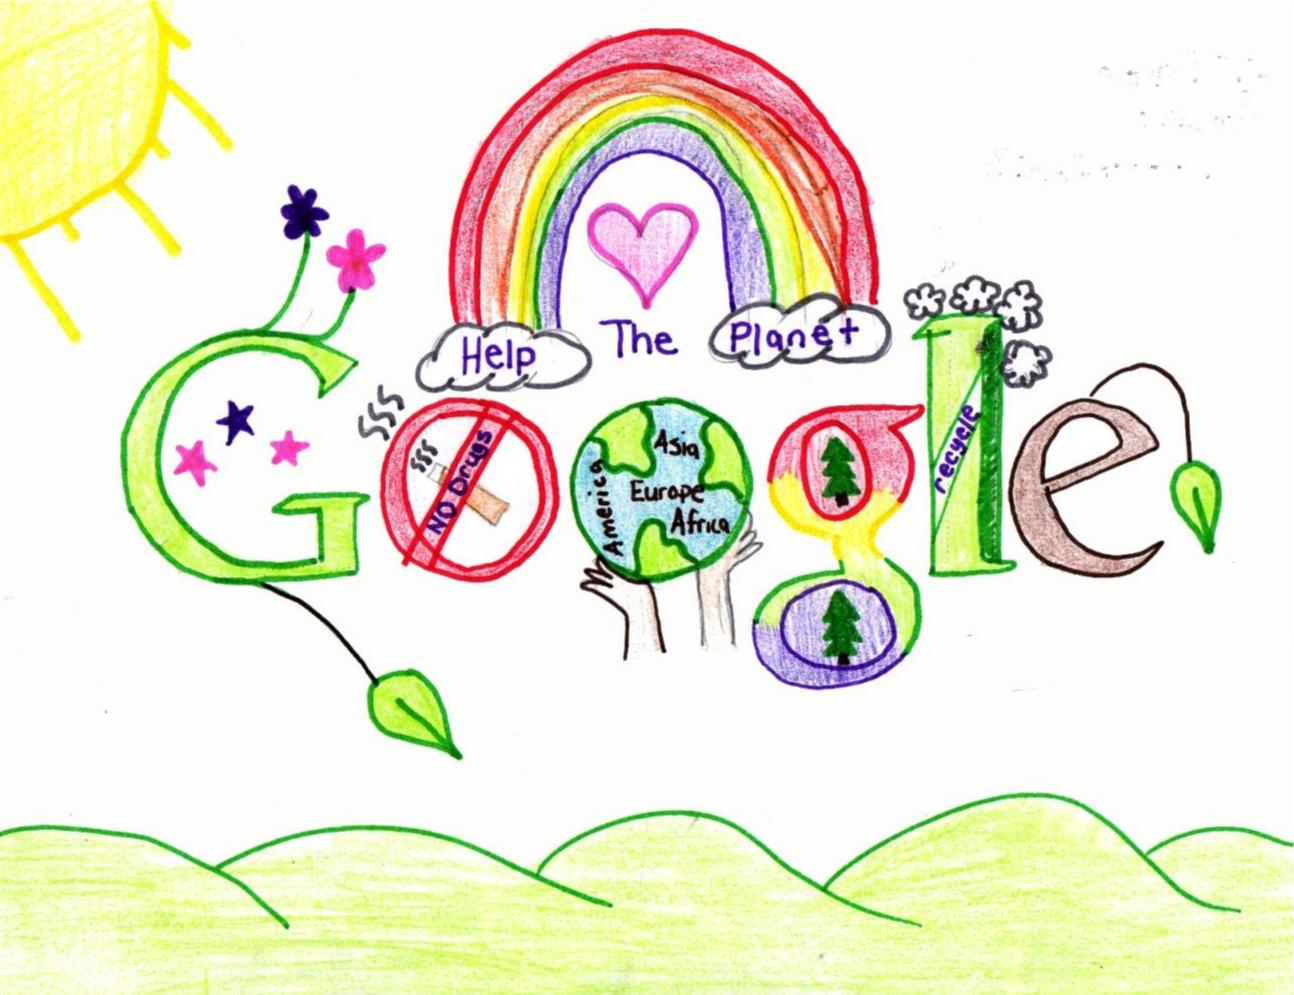 Help The Planet
Google
NO Drugs
Asia
America
Europe
Africa
recycle